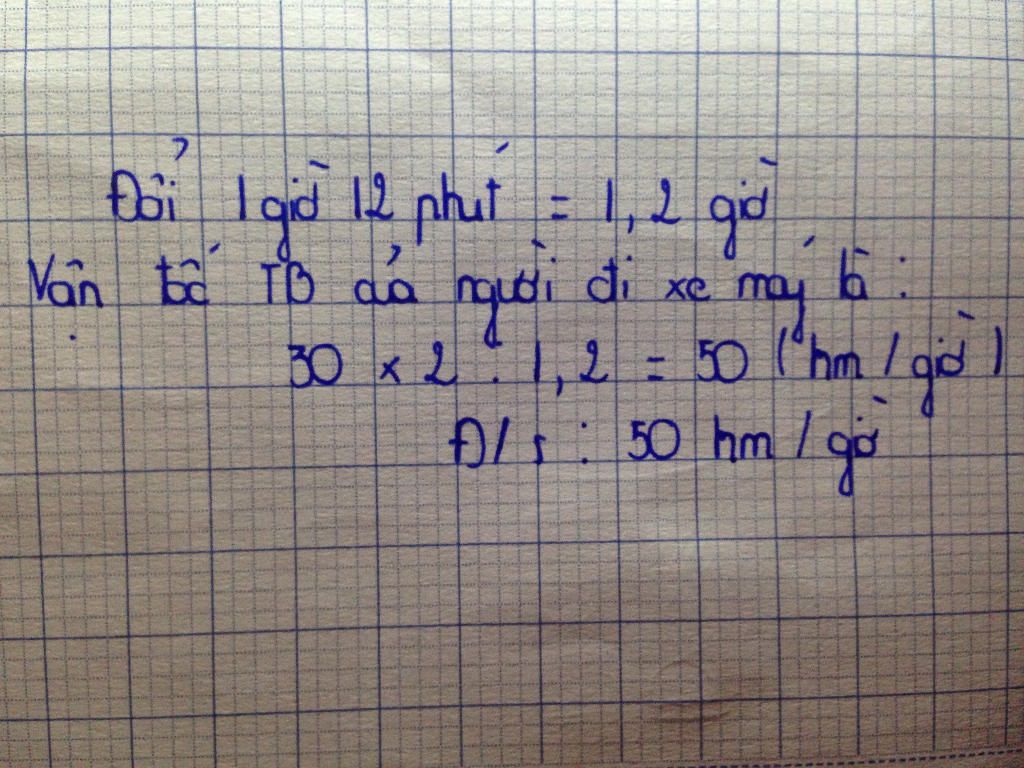 Đổi 1 giờ 12 phút = 1,2 giờ
Vận tốc TB của người đi xe máy là :
30 x 2 : 1,2 = 50 ( km / giờ )
Đ/s : 50 km / giờ